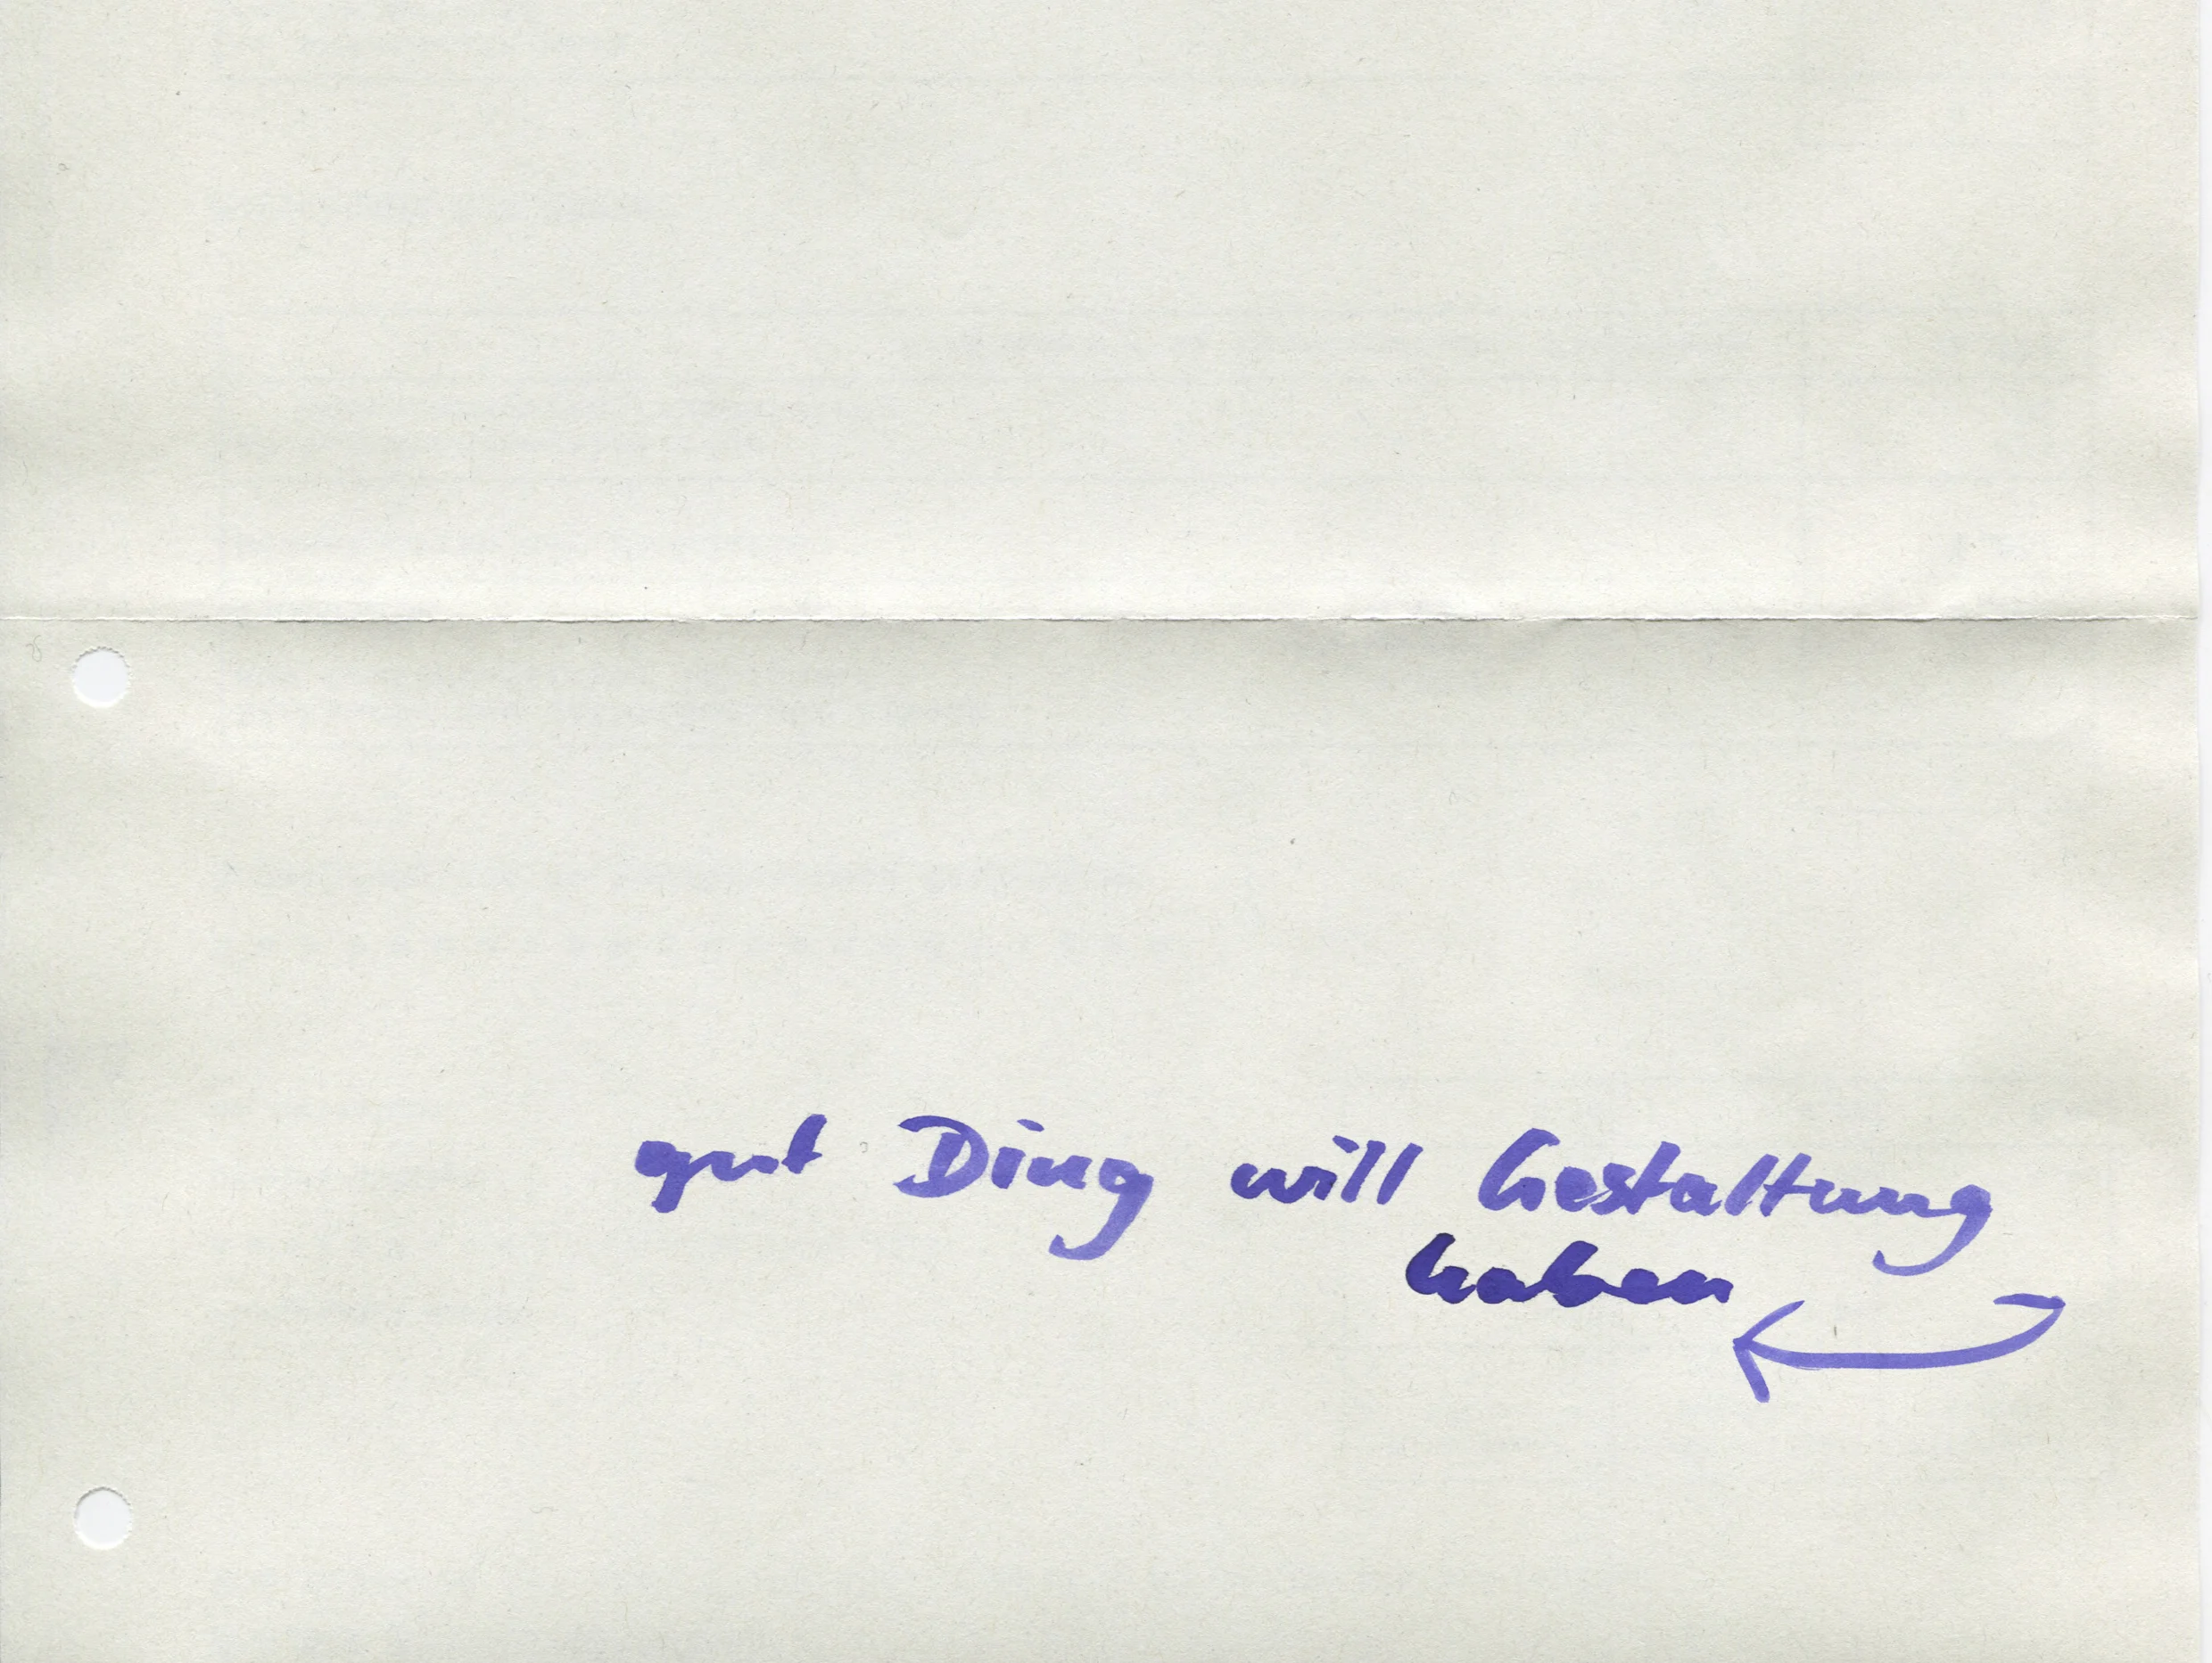 gut Ding will Gestaltung
haben